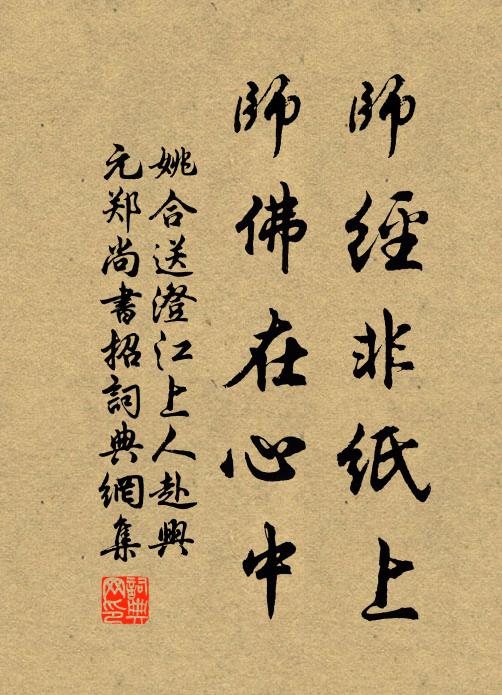 師經非紙上
師佛在心中
姚合送澄江上人赴興
元郑尚書招詞典網集
詞典网印